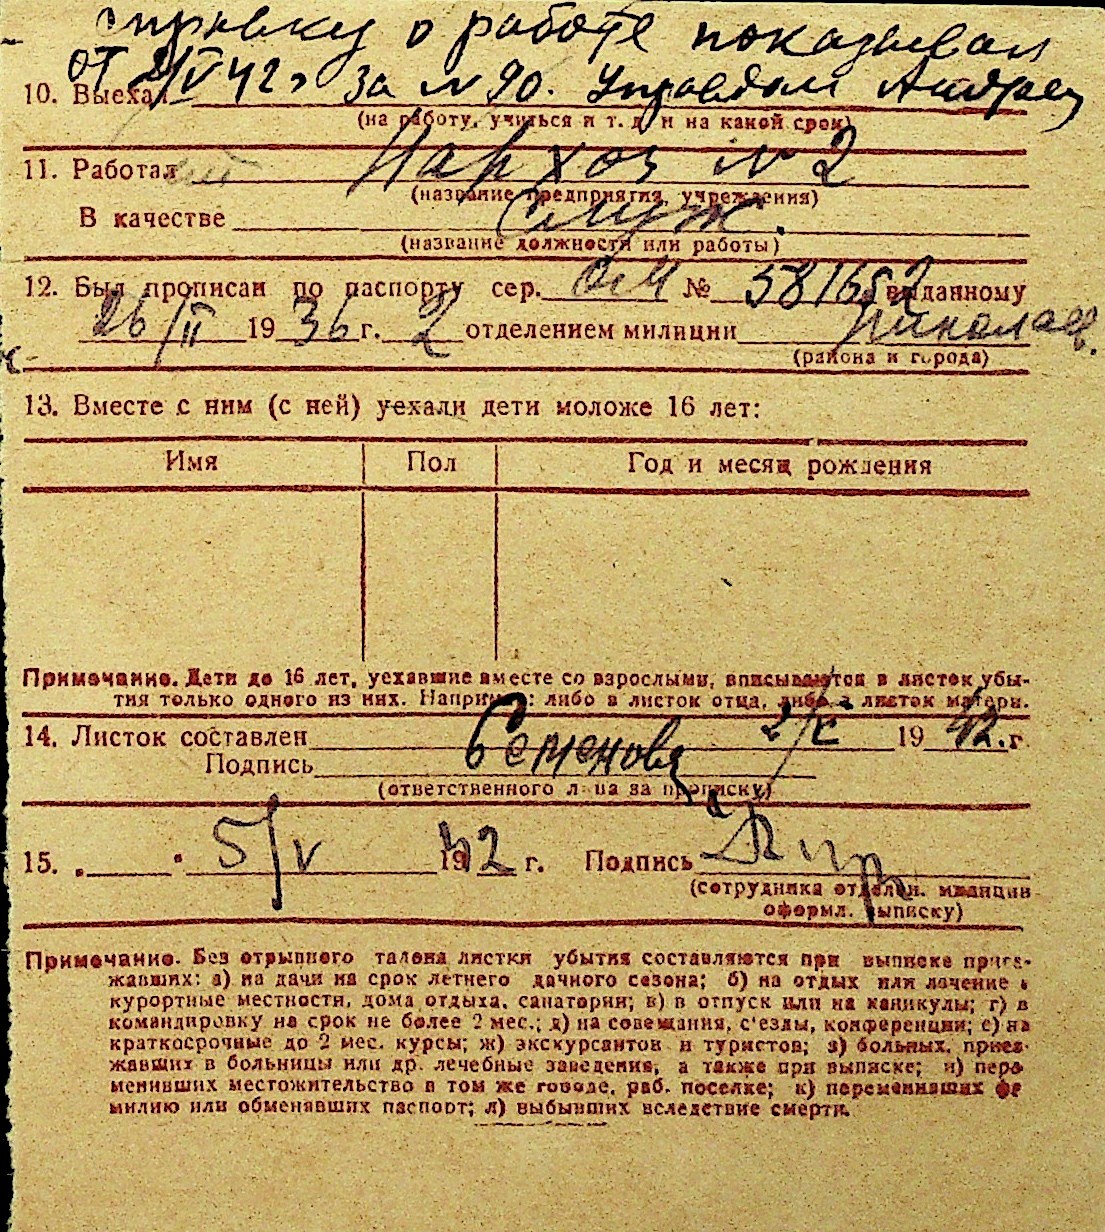 справку о работе показывал
от 2/V 42 г за № 90. Управдом Андреев
10. Выехал
(на работу, учиться и т. д. и на какой срок)
11. Работал Нархоз № 2
(название предприятия, учреждения)
В качестве служ.
(название должности или работы)
12. Был прописан по паспорту сер. № 581652 выданному
26/II 1936 г. 2 отделением милиции Николаев.
(района и города)
13. Вместе с ним (с ней) уехали дети моложе 16 лет:
Имя Пол Год и месяц рождения
Примечание. Дети до 16 лет, уехавшие вместе со взрослыми, вписываются в листок убы-
тия только одного из них. Например: либо в листок отца, либо в листок матери.
14. Листок составлен 2/V 1942. г.
Подпись Семенова
(ответственного лица за прописку)
15. „ " 5/V 1942 г. Подпись
(сотрудника отделен. милиции
оформл. выписку)
Примечание. Без отрывного талона листки убытия составляются при выписке приез-
жавших: а) на дачи на срок летнего дачного сезона; б) на отдых или лечение в
курортные местности, дома отдыха, санатории; в) в отпуск или на каникулы; г) в
командировку на срок не более 2 мес.; д) на совещания, с'езды, конференции; е) на
краткосрочные до 2 мес. курсы; ж) экскурсантов и туристов; з) больных, приез-
жавших в больницы или др. лечебные заведения, а также при выписке; и) пере
менивших местожительство в том же городе, раб. поселке; к) переменивших фа
милию или обменявших паспорт; л) выбывших вследствие смерти.